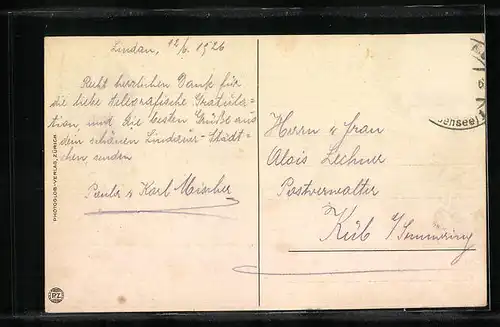 Lindau, 12/6. 1926
Recht herzlichen Dank für
die liebe telegrafische Gratula=
tion, und die besten Grüße aus
dem schönen Lindauer-Städt=
chen, senden
Paula u Karl Mischer
Herrn u Frau
Alois Lechner
Postverwalter
Küb a/Semmering
PHOTOGLOB-VERLAG, ZÜRICH
PZ